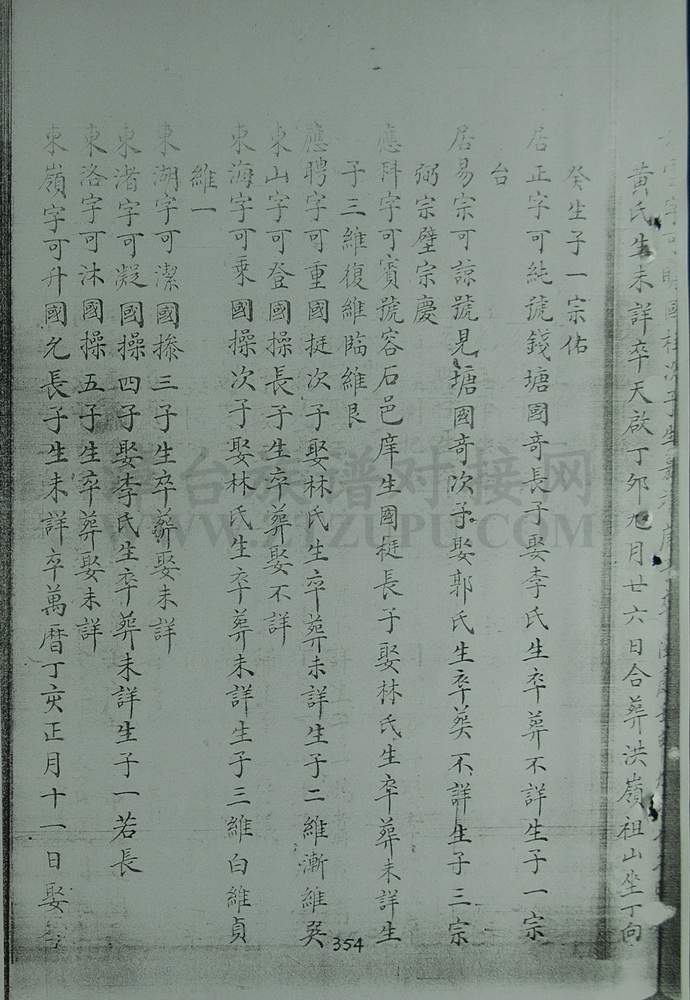 字可
黄氏生未詳卒天啟丁卯九月廿六日合葬洪嶺祖山坐丁向
癸生子一宗佑
居正字可純號錢塘國奇長子娶李氏生卒葬不詳生子一宗
台
居易宗可諒號見塘國奇次子娶郭氏生卒葵不詳生子三宗
弼宗璧宗慶
應科字可賓號容石邑庠生國挺長子娶林氏生卒葬未詳生
子三維復維臨維艮
應聘字可重國挺次子娶林氏生卒葬未詳生子二維漸維巽
東山字可登國操長子生卒葬娶不詳
東海字可乘國操次子娶林氏生卒葬未詳生子三維白維貞
維一
東湖字可潔國摻三子生卒葬娶未詳
東渚字可凝國操四子娶李氏生卒葬未詳生子一若長
東洛字可沐國操五子生卒葬娶未詳
東嶺字可升國允長子生未詳卒萬曆丁亥正月十一日娶
354
台 譜对接网
WWW.ZTZUPU.COM